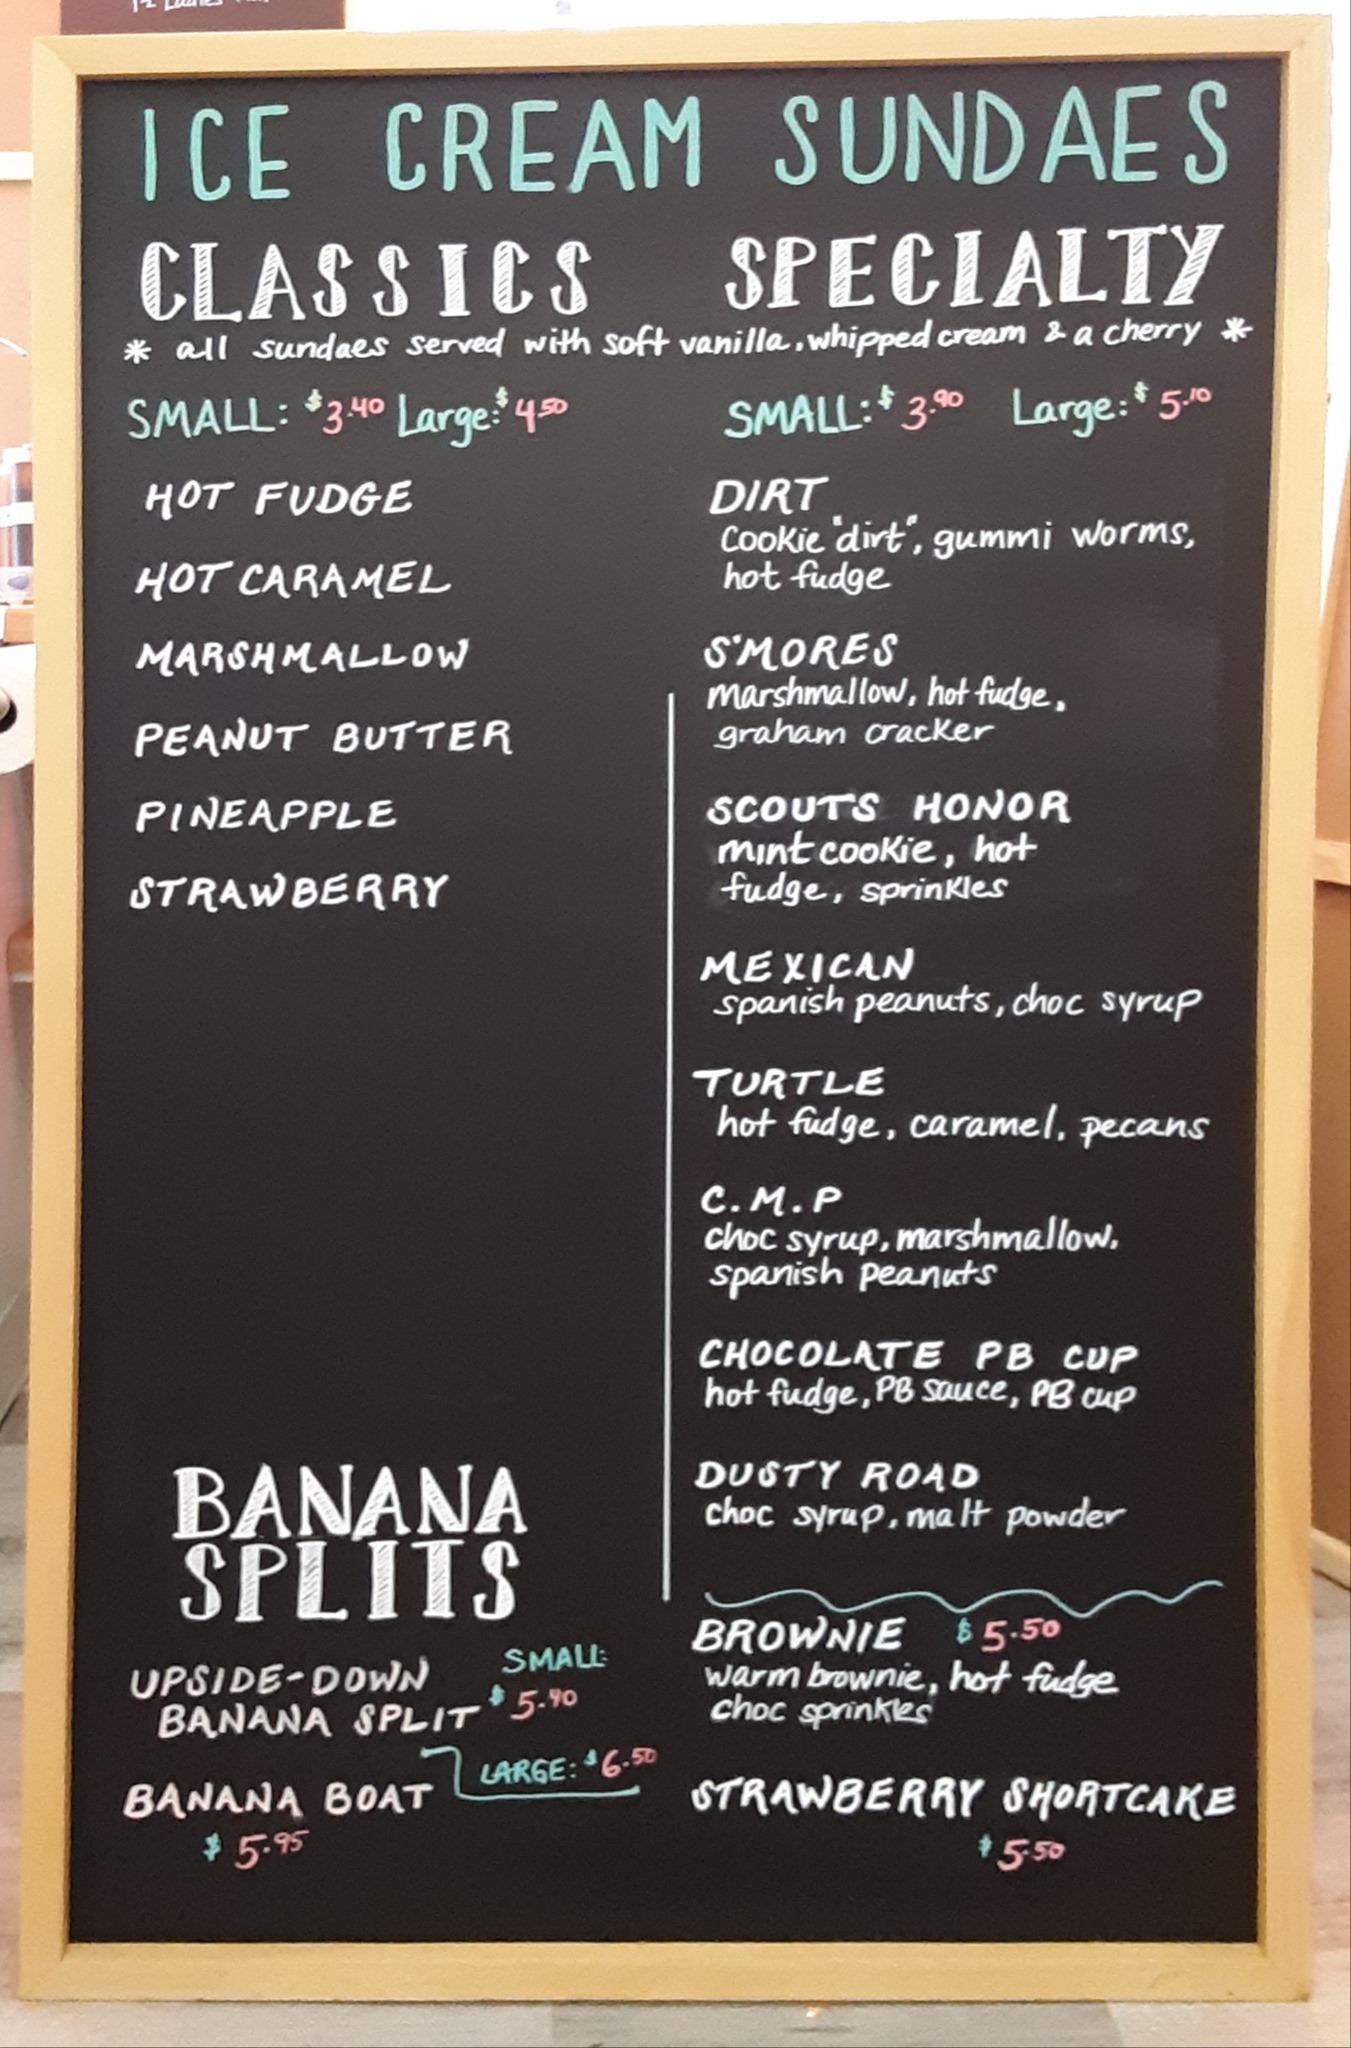 ICE CREAM SUNDAES
CLASSICS
SPECIALTY
* all sundaes served with soft vanilla, whipped cream & a cherry *
SMALL: $3.40 Large: $4.50
HOT FUDGE
HOT CARAMEL
MARSHMALLOW
PEANUT BUTTER
PINEAPPLE
STRAWBERRY
SMALL: $3.90 Large: $5.10
DIRT
cookie "dirt", gummi worms,
hot fudge
S'MORES
marshmallow, hot fudge,
graham cracker
SCOUT'S HONOR
mint cookie, hot
fudge, sprinkles
MEXICAN
spanish peanuts, choc syrup
TURTLE
hot fudge, caramel, pecans
C.M.P
choc syrup, marshmallow,
spanish peanuts
CHOCOLATE PB CUP
hot fudge, PB sauce, PB cup
DUSTY ROAD
choc syrup, malt powder
BROWNIE $5.50
warm brownie, hot fudge
choc sprinkles
STRAWBERRY SHORTCAKE
$5.50
BANANA
SPLITS
UPSIDE-DOWN
BANANA SPLIT
SMALL:
$5.40
LARGE: $6.50
BANANA BOAT
$5.95